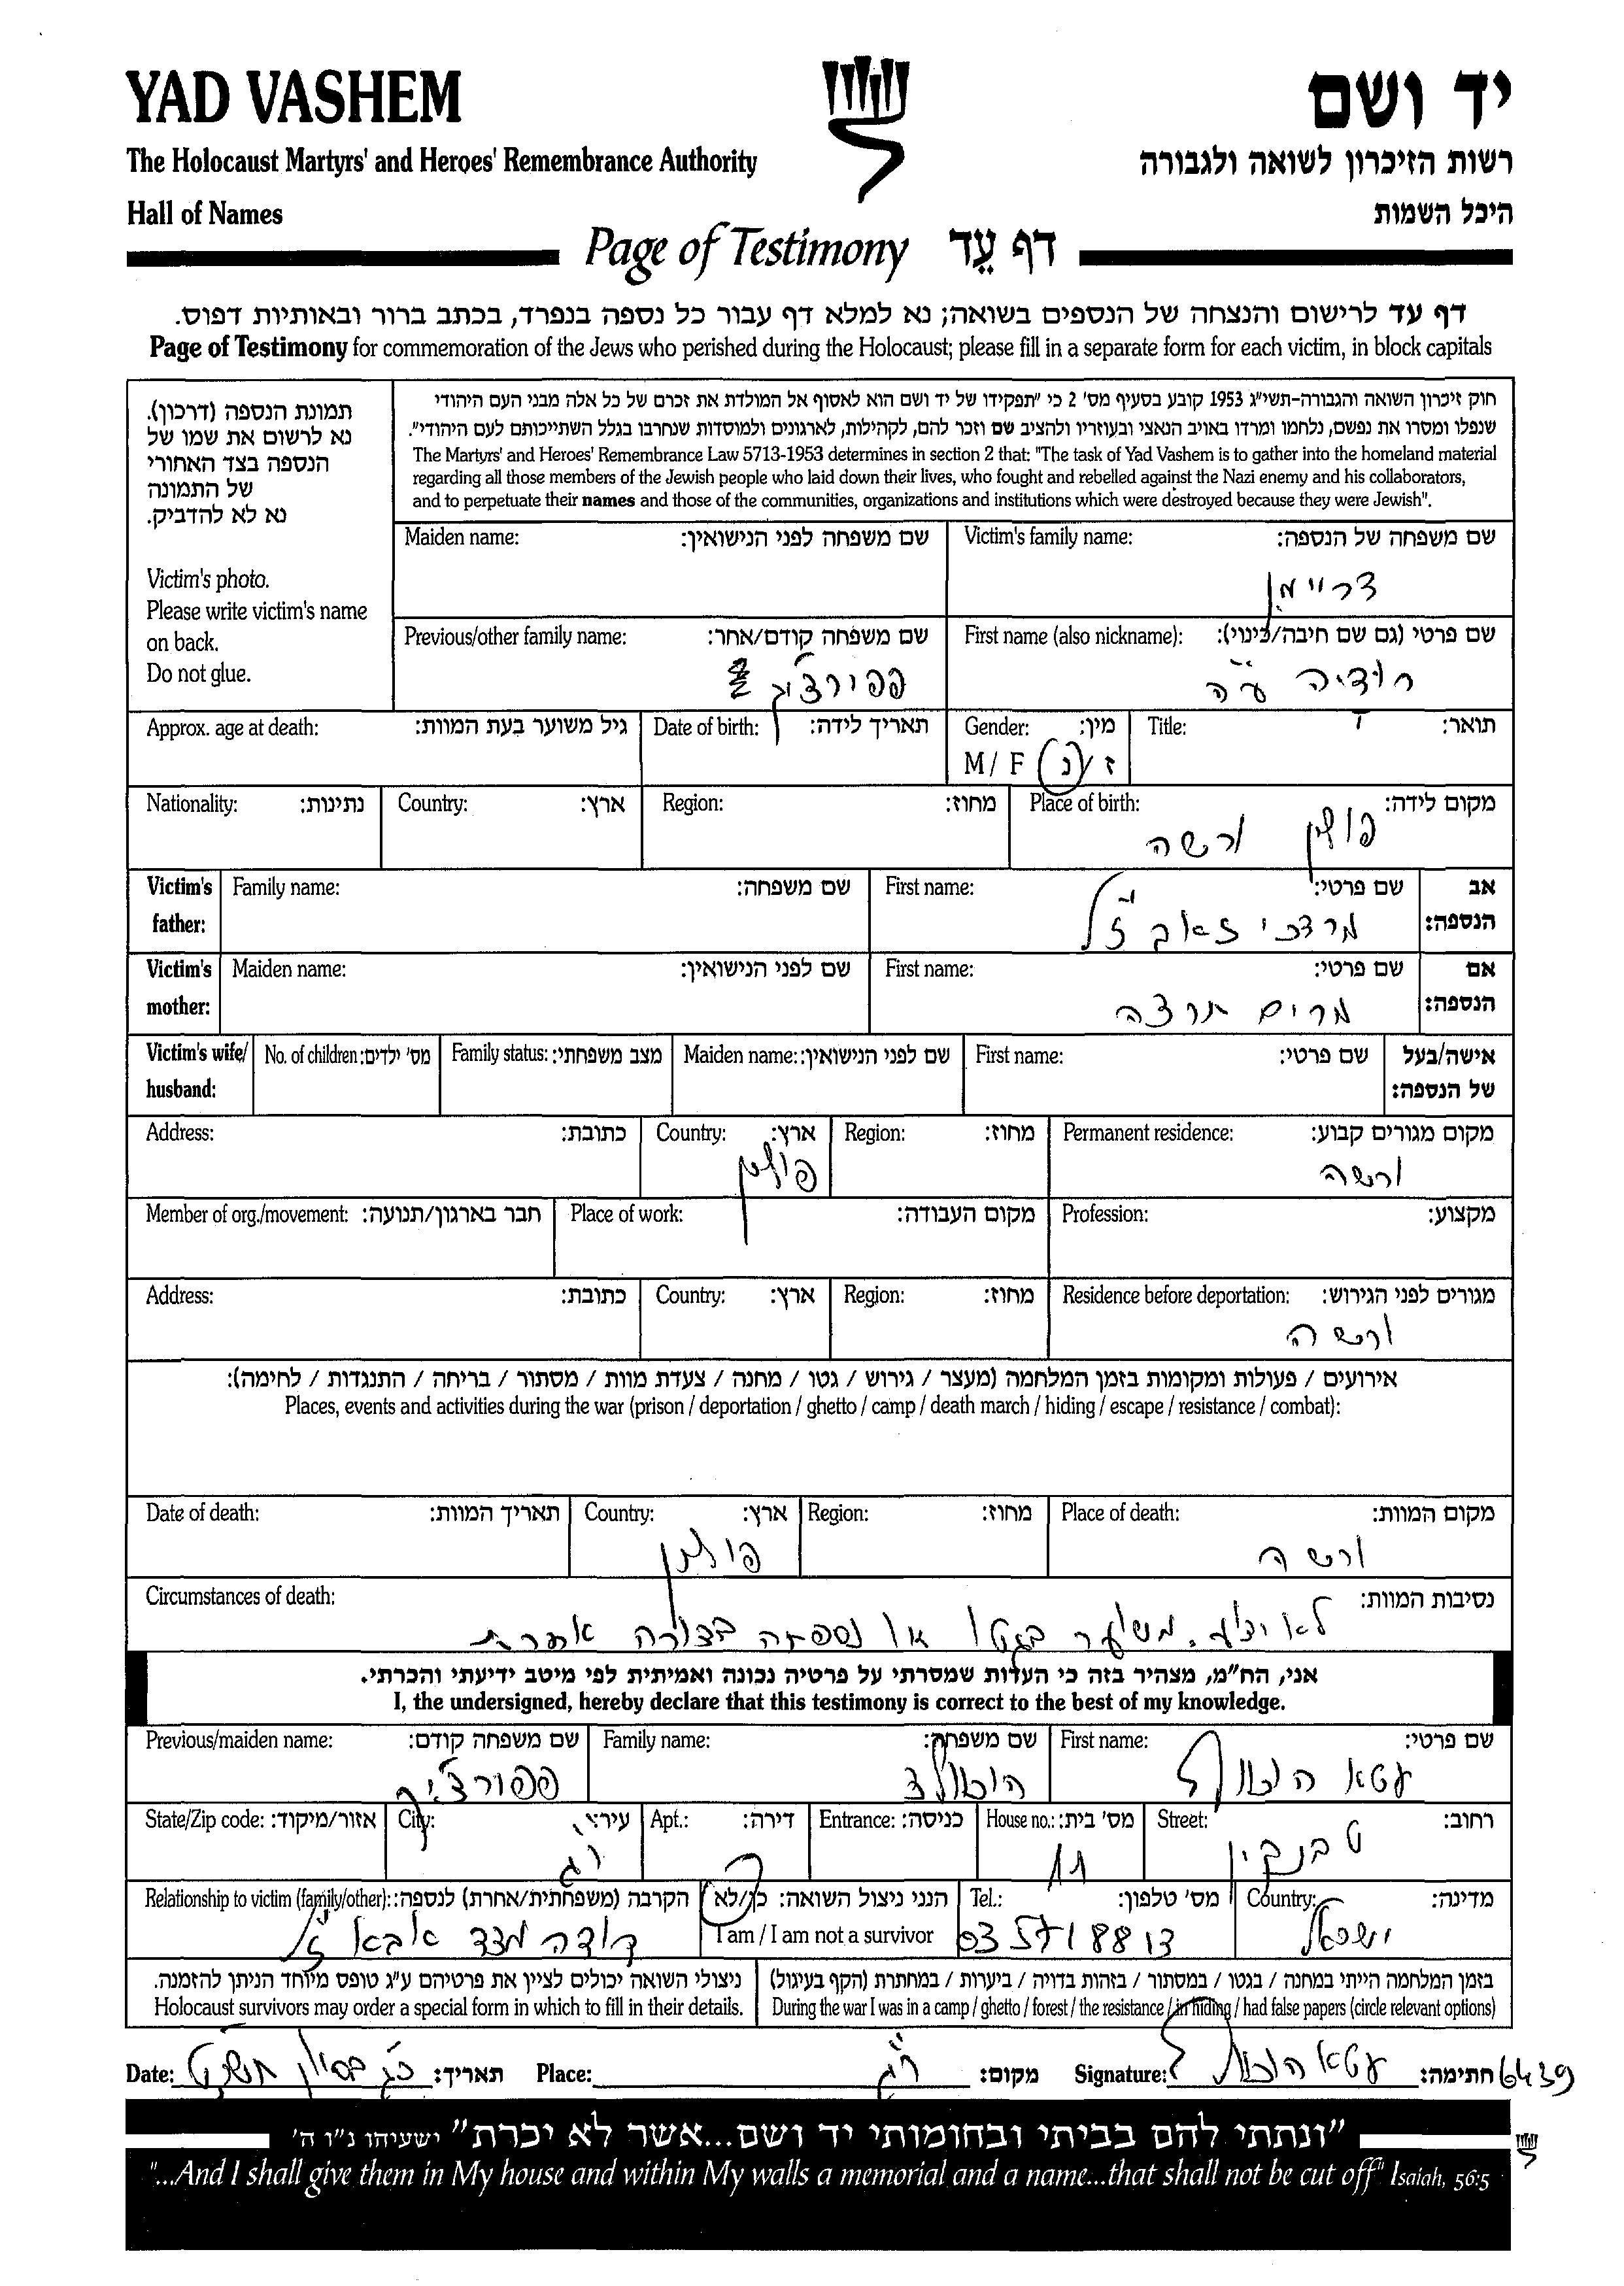 YAD VASHEM
יד ושם
The Holocaust Martyrs' and Heroes' Remembrance Authority
רשות הזיכרון לשואה ולגבורה
Hall of Names
היכל השמות
Page of Testimony דף עֵד
דף עד לרישום והנצחה של הנספים בשואה; נא למלא דף עבור כל נספה בנפרד, בכתב ברור ובאותיות דפוס.
Page of Testimony for commemoration of the Jews who perished during the Holocaust; please fill in a separate form for each victim, in block capitals
תמונת הנספה (דרכון).
נא לרשום את שמו של
הנספה בצד האחורי
של התמונה
נא לא להדביק.
Victim's photo.
Please write victim's name
on back.
Do not glue.
חוק זיכרון השואה והגבורה-תשי"ג 1953 קובע בסעיף מס' 2 כי "תפקידו של יד ושם הוא לאסוף אל המולדת את זכרם של כל אלה מבני העם היהודי
שנפלו ומסרו את נפשם, נלחמו ומרדו באויב הנאצי ובעוזריו ולהציב שם וזכר להם, לקהילות, לארגונים ולמוסדות שנחרבו בגלל השתייכותם לעם היהודי".
The Martyrs' and Heroes' Remembrance Law 5713-1953 determines in section 2 that: "The task of Yad Vashem is to gather into the homeland material
regarding all those members of the Jewish people who laid down their lives, who fought and rebelled against the Nazi enemy and his collaborators,
and to perpetuate their names and those of the communities, organizations and institutions which were destroyed because they were Jewish".
Maiden name: שם משפחה לפני הנישואין: Victim's family name: שם משפחה של הנספה:
דריימן
Previous/other family name: שם משפחה קודם/אחר: First name (also nickname): שם פרטי (גם שם חיבה/כינוי):
ע"ה
Approx. age at death: גיל משוער בעת המוות: Date of birth: תאריך לידה: Gender: מין: Title: תואר:
M / F ז / נ
Nationality: נתינות: Country: ארץ: Region: מחוז: Place of birth: מקום לידה:
פולין ורשה
Victim's father: Family name: שם משפחה: First name: שם פרטי: אב הנספה:
מרדכי זאב ז"ל
Victim's mother: Maiden name: שם לפני הנישואין: First name: שם פרטי: אם הנספה:
מרים תרצה
Victim's wife/ husband: No. of children: מס' ילדים: Family status: מצב משפחתי: Maiden name: שם לפני הנישואין: First name: שם פרטי: אישה/בעל של הנספה:
Address: כתובת: Country: ארץ: Region: מחוז: Permanent residence: מקום מגורים קבוע:
פולין ורשה
Member of org./movement: חבר בארגון/תנועה: Place of work: מקום העבודה: Profession: מקצוע:
Address: כתובת: Country: ארץ: Region: מחוז: Residence before deportation: מגורים לפני הגירוש:
ורשה
אירועים / פעולות ומקומות בזמן המלחמה (מעצר / גירוש / גטו / מחנה / צעדת מוות / מסתור / בריחה / התנגדות / לחימה):
Places, events and activities during the war (prison / deportation / ghetto / camp / death march / hiding / escape / resistance / combat):
Date of death: תאריך המוות: Country: ארץ: Region: מחוז: Place of death: מקום המוות:
פולין ורשה
Circumstances of death: נסיבות המוות:
לא ידוע. משוער בגטו או נספתה בצורה אחרת
אני, הח"מ, מצהיר בזה כי העדות שמסרתי על פרטיה נכונה ואמיתית לפי מיטב ידיעתי והכרתי.
I, the undersigned, hereby declare that this testimony is correct to the best of my knowledge.
Previous/maiden name: שם משפחה קודם: Family name: שם משפחה: First name: שם פרטי:
עטא
State/Zip code: אזור/מיקוד: City: עיר: Apt.: דירה: Entrance: כניסה: House no.: מס' בית: Street: רחוב:
טבנקין 11
Relationship to victim (family/other): הקרבה (משפחתית/אחרת) לנספה: הנני ניצול השואה: כן/לא Tel.: מס' טלפון: Country: מדינה:
I am / I am not a survivor
דודה מצד אבא ז"ל 03 5718813 ישראל
ניצולי השואה יכולים לציין את פרטיהם ע"ג טופס מיוחד הניתן להזמנה. בזמן המלחמה הייתי במחנה / בגטו / במסתור / בזהות בדויה / ביערות / במחתרת (הקף בעיגול)
Holocaust survivors may order a special form in which to fill in their details. During the war I was in a camp / ghetto / forest / the resistance / in hiding / had false papers (circle relevant options)
Date: תאריך: Place: מקום: Signature: עטא חתימה: 6439
"ונתתי להם בביתי ובחומותי יד ושם...אשר לא יכרת" ישעיהו נ"ו ה'
"...And I shall give them in My house and within My walls a memorial and a name...that shall not be cut off" Isaiah, 56:5